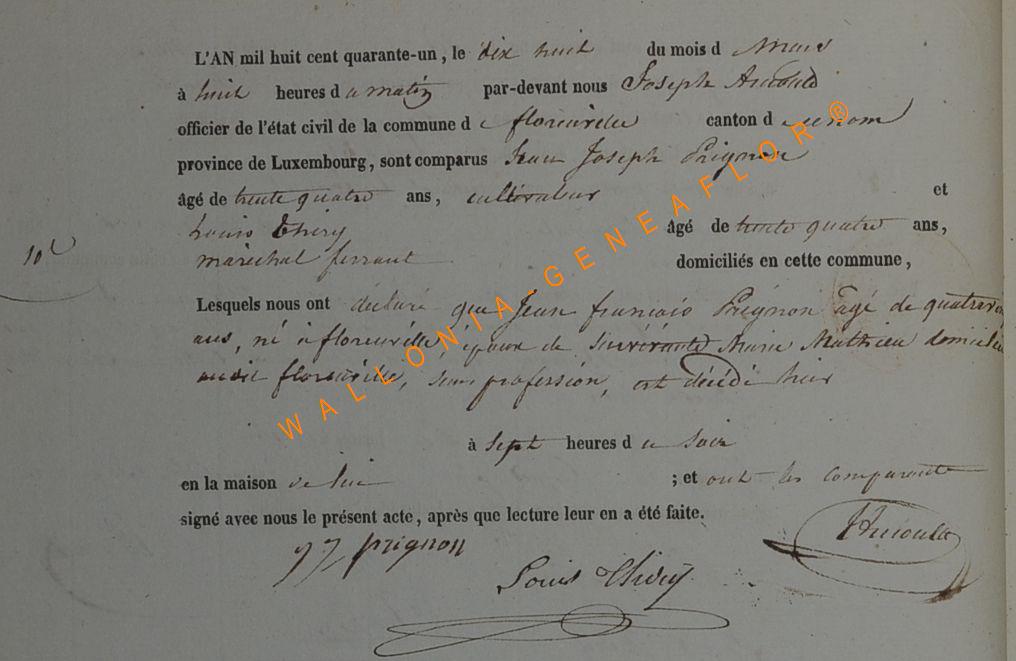 L'AN mil huit cent quarante-un, le dix huit du mois d Mars
à huit heures d u matin par-devant nous Joseph Arnould
officier de l'état civil de la commune d e florenville canton d e
province de Luxembourg, sont comparus Jean Joseph Prignon
âgé de trente quatre ans, cultivateur et
Louis Thiry âgé de trente quatre ans,
maréchal ferrant domiciliés en cette commune,
10
Lesquels nous ont déclaré que Jean françois Prignon âgé de
ans, né à florenville, époux de Marie Mathieu
florenville, sans profession, est décédé hier
à sept heures d u soir
en la maison de lui ; et ont les comparants
signé avec nous le présent acte, après que lecture leur en a été faite.
JJ prignon
Louis Thiry
WALLONIA-GENEAFLOR®